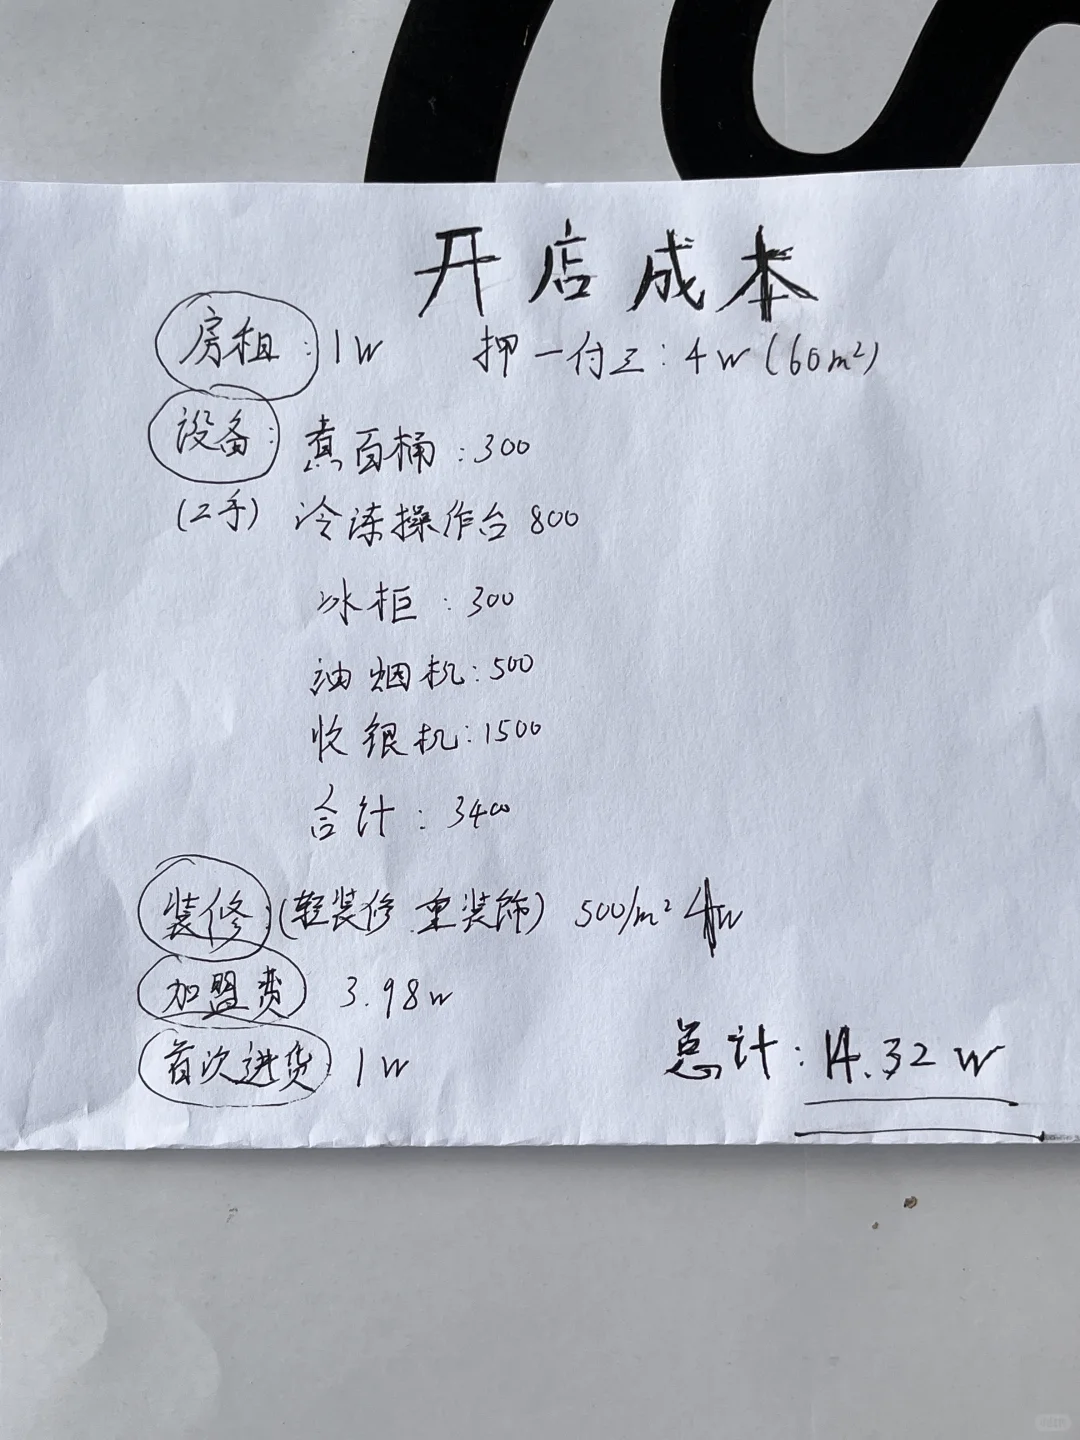 开店成本
房租：1W 押一付三：4W（60m²）
设备：煮面桶：300
（二手） 冷冻操作台 800
冰柜：300
油烟机：500
收银机：1500
合计：3400
装修：（轻装修 重装饰） 500/m² 4W
加盟费 3.98W
首次进货 1W
总计：14.32W